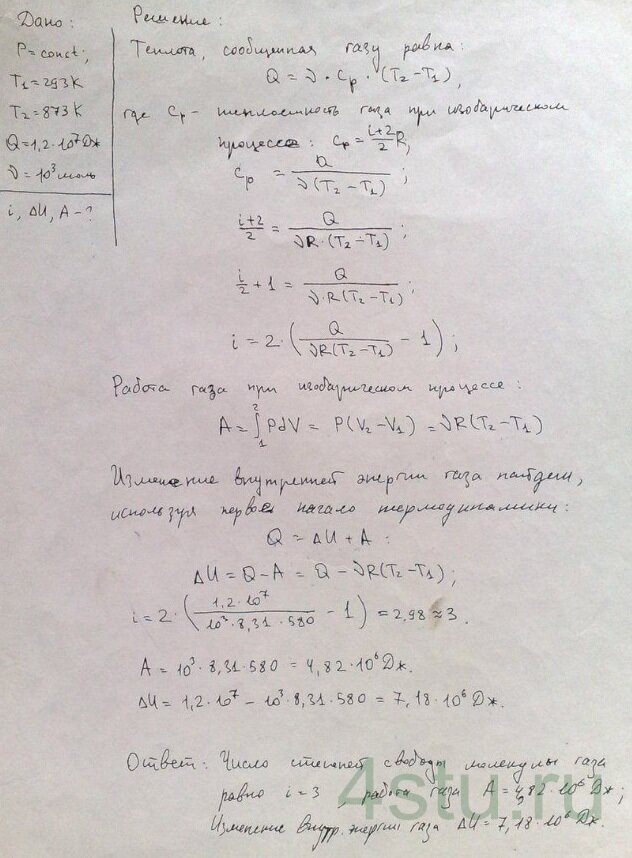 Дано:
P = const;
T₁ = 293 K
T₂ = 873 K
Q = 1,2·10⁷ Дж
ν = 10³ моль
i, ΔU, A - ?
Решение:
Теплота, сообщенная газу равна:
Q = ν · Cp · (T₂ - T₁),
где Cp - теплоемкость газа при изобарическом
процессе: Cp = (i+2)/2 R,
Cp = Q / (ν(T₂ - T₁)) ;
(i+2)/2 = Q / (νR·(T₂ - T₁)) ;
i/2 + 1 = Q / (ν·R(T₂ - T₁)) ;
i = 2·(Q / (νR(T₂ - T₁)) - 1) ;
Работа газа при изобарическом процессе:
A = ∫₁² PdV = P(V₂ - V₁) = νR(T₂ - T₁)
Изменение внутренней энергии газа найдем,
используя первое начало термодинамики:
Q = ΔU + A :
ΔU = Q - A = Q - νR(T₂ - T₁) ;
i = 2·(1,2·10⁷ / (10³·8,31·580) - 1) = 2,98 ≈ 3.
A = 10³·8,31·580 = 4,82·10⁶ Дж.
ΔU = 1,2·10⁷ - 10³·8,31·580 = 7,18·10⁶ Дж.
Ответ: Число степеней свободы молекулы газа
равно i = 3, работа газа A = 4,82·10⁶ Дж;
Изменение внутр. энергии газа ΔU = 7,18·10⁶ Дж.
4stu.ru